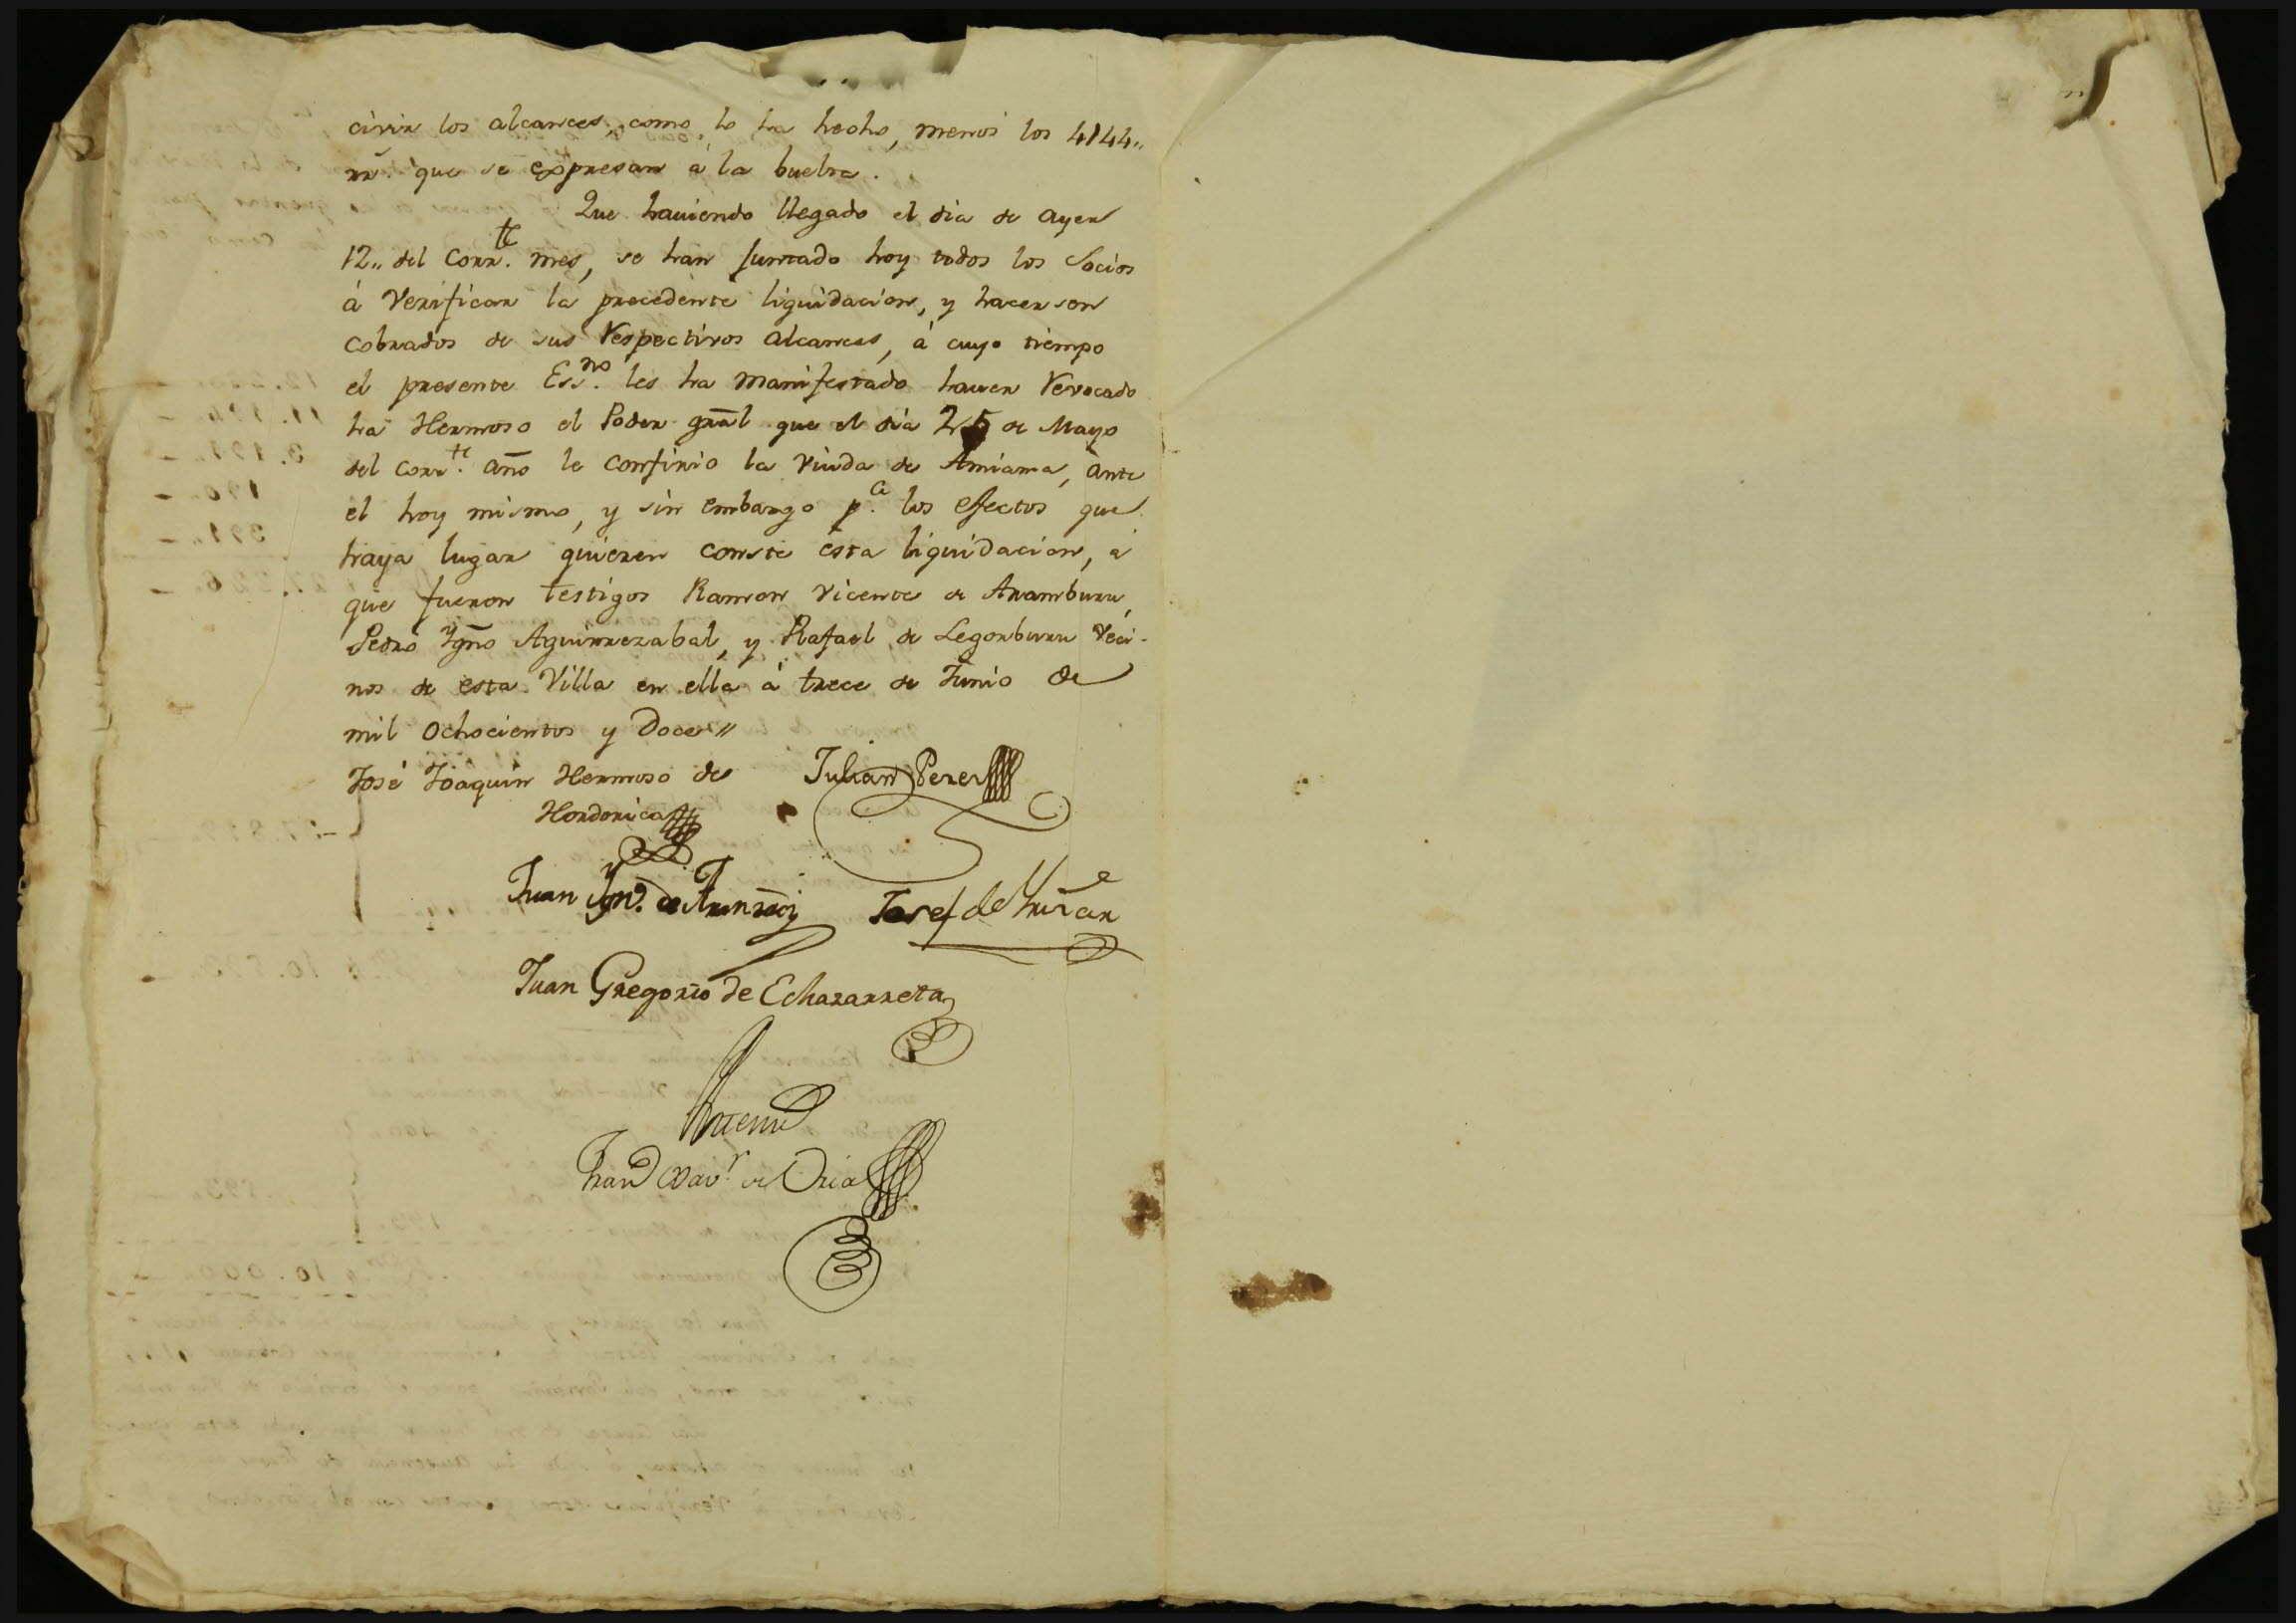 civir los alcances, como lo ha hecho, menos los 4144,,
rr.̃ que se expresan á la buelta.
Que haviendo llegado el dia de ayer
12,, del Corr.te mes, se han juntado hoy todos los Socios
á Verificar la precedente liquidacion, y hacerson
cobrados de sus Respectivos alcances, á cuyo tiempo
el presente Ess.no les ha manifestado haver Revocado
ha Hermoso el Poder grãl que el dia 25 de Mayo
del corr.te año le confirio la Viuda de Amiama, ante
el hoy mismo, y sin embargo p.a los efectos que
haya lugar quieren conste esta liquidacion, á
que fueron testigos Ramon Vicente de Aramburu,
Pedro Ygnõ Aguirrezabal, y Rafael de Legorburu Veci-
nos de esta Villa en ella á trece de Junio de
mil ochocientos y Doce //
José Joaquin Hermoso de Julian Perez
Hordorica
Juan Ygn.o de Josef de
Juan Gregorio de Echazarreta
Antemi
Fran Xav.r de Oria